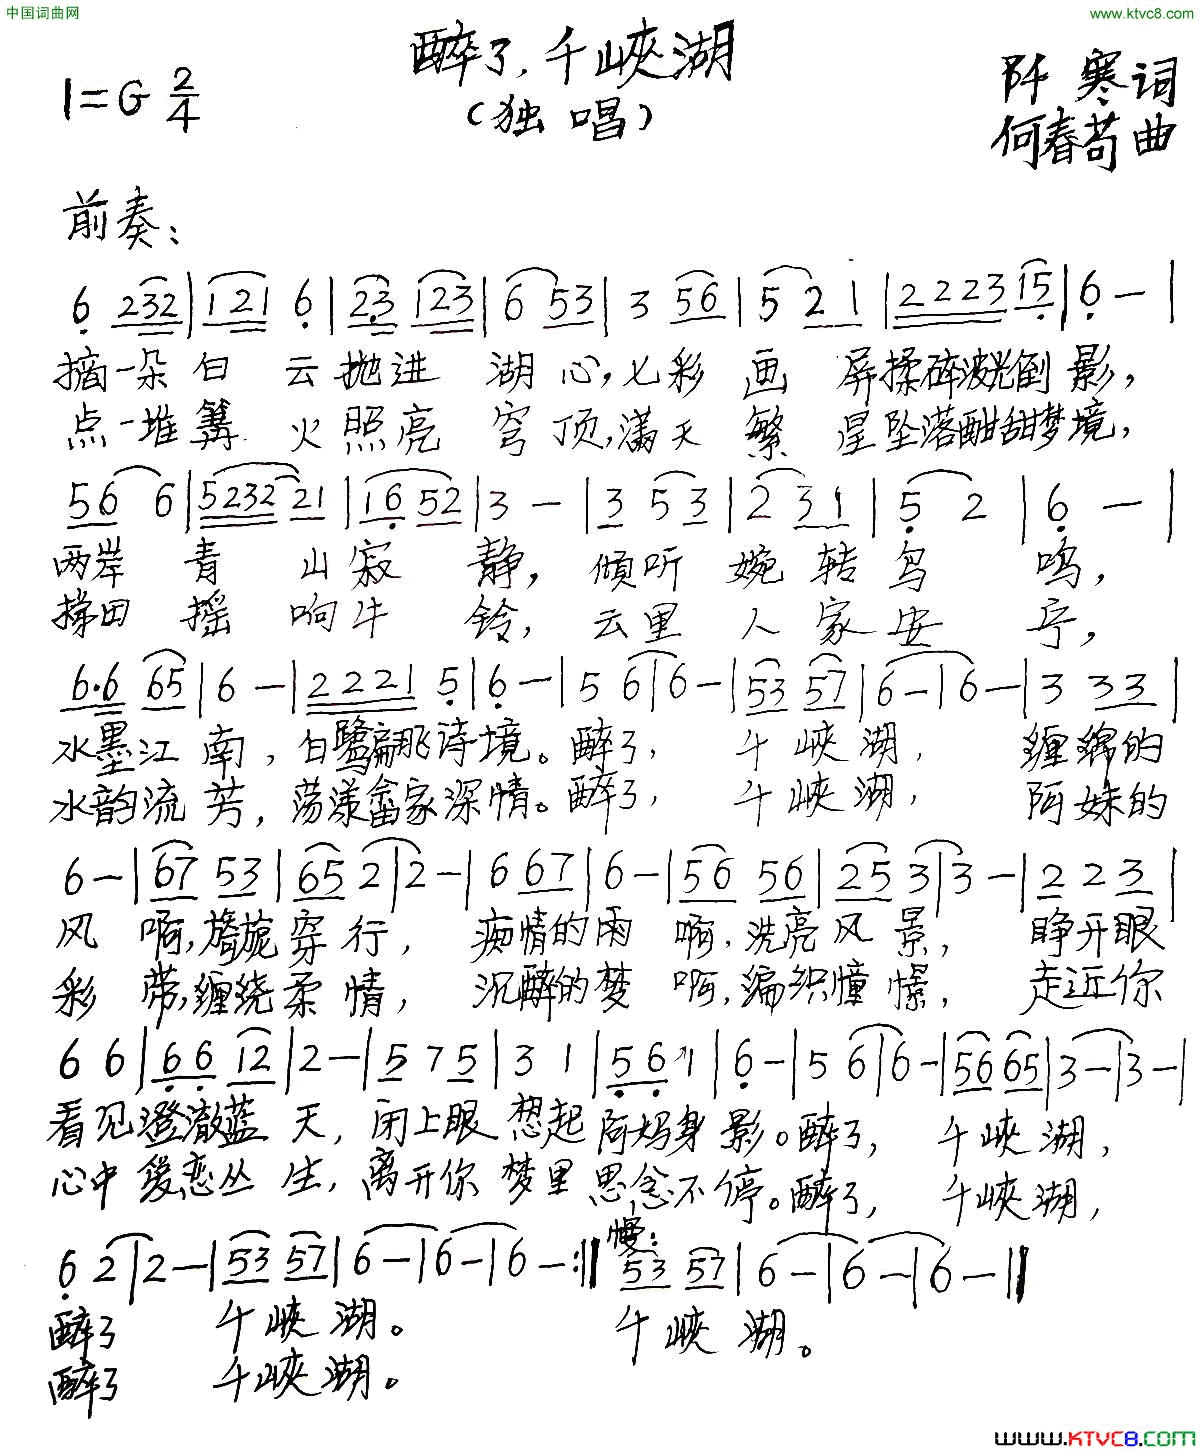 中国词曲网
www.ktvc8.com
醉了,千峡湖
1=G 2/4
(独唱)
阡寒词
何春苟曲
前奏:
6 232 | 121 6 | 23 123 | 6 53 | 3 56 | 5 21 | 2223 15 | 6 — |
摘一朵白云抛进湖心,七彩画屏揉碎波光倒影,
点一堆篝火照亮穹顶,满天繁星坠落酣甜梦境,
56 6 | 5232 21 | 16 52 | 3 — | 3 5 3 | 2 31 | 5 2 | 6 — |
两岸青山寂静,倾听婉转鸟鸣,
梯田摇响牛铃,云里人家安宁,
6·6 65 | 6 — | 2221 5 | 6 — | 5 6 | 6 — | 53 57 | 6 — | 6 — | 3 33 |
水墨江南,白鹭翩飞诗境。醉了,千峡湖,缠绵的
水韵流芳,荡漾畲家深情。醉了,千峡湖,阿妹的
6 — | 67 53 | 65 2 | 2 — | 6 67 | 6 — | 56 56 | 25 3 | 3 — | 2 2 3 |
风啊,旖旎穿行,痴情的雨啊,洗亮风景,睁开眼
彩带,缠绕柔情,沉醉的梦啊,编织憧憬,走近你
6 6 | 66 12 | 2 — | 5 7 5 | 3 1 | 56 1 | 6 — | 5 6 | 6 — | 56 65 | 3 — | 3 — |
看见澄澈蓝天,闭上眼想起阿妈身影。醉了,千峡湖,
心中爱恋丛生,离开你梦里思念不停。醉了,千峡湖,
慢:
6 2 | 2 — | 53 57 | 6 — | 6 — | 6 — :‖ 53 57 | 6 — | 6 — | 6 — ‖
醉了千峡湖。千峡湖。
醉了千峡湖。
www.KTVC8.com